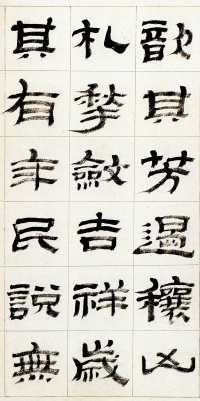 歆其芳遏穰凶
札揫斂吉祥歲
其有年民說無